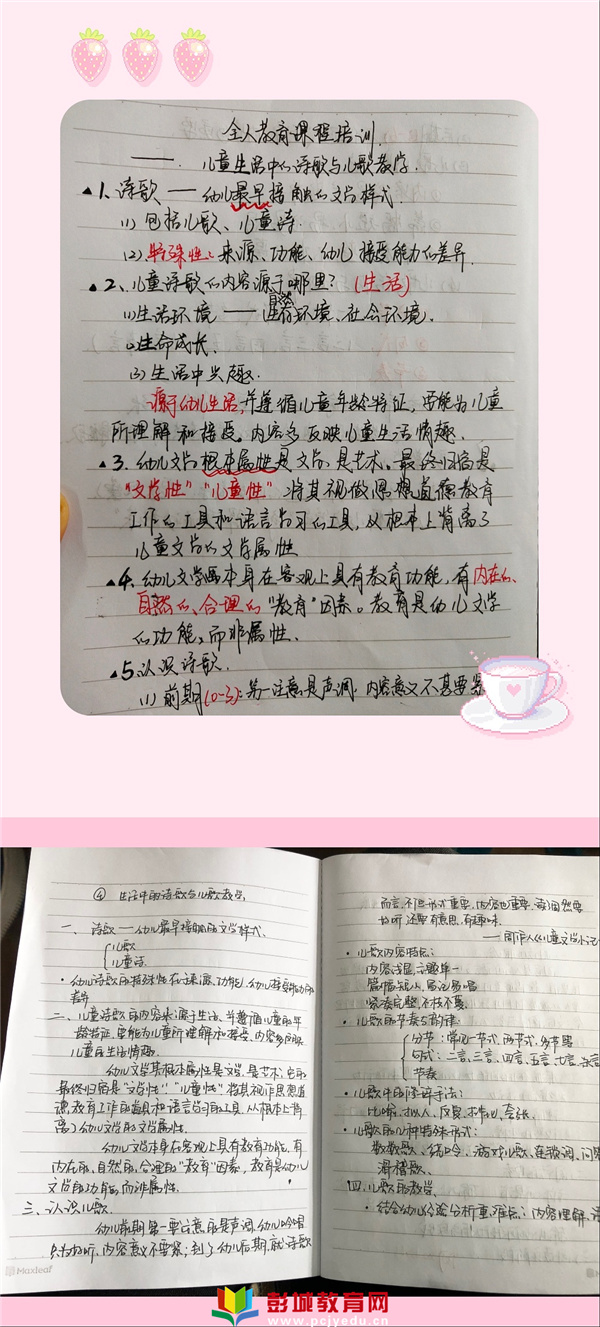 全人教育课程培训.
——. 儿童生活中的诗歌与儿歌教学.
▲1. 诗歌——幼儿最早接触的文学样式.
(1) 包括儿歌、儿童诗.
(2) 特殊性: 来源、功能、幼儿接受能力的差异.
▲2. 儿童诗歌的内容源于哪里? (生活)
(1) 生活环境——自然环境、社会环境.
(2) 生命成长.
(3) 生活中兴趣.
源于幼儿生活, 并遵循儿童年龄特征, 要能为儿童
所理解和接受。内容多反映儿童生活情趣.
▲3. 幼儿文学根本属性是文学、是艺术. 最终归宿是
“文学性”“儿童性”将其视做思想道德教育
工作的工具和语言学习的工具, 从根本上背离了
儿童文学的文学属性
▲4. 幼儿文学本身在客观上具有教育功能, 有内在的、
自然的、合理的“教育”因素。教育是幼儿文学
的功能, 而非属性.
▲5. 认识诗歌.
(1) 前期(0-3): 第一注意是声调, 内容意义不甚要紧
④ 生活中的诗歌与儿歌教学.
一、诗歌——幼儿最早接触的文学样式.
儿歌
儿童诗.
· 幼儿诗歌的特殊性在于来源、功能、幼儿接受能力的
差异
二、儿童诗歌的内容来源于生活、并遵循儿童的年
龄特征, 要能为儿童所理解和接受, 内容多反映
儿童的生活情趣.
幼儿文学其根本属性是文学、是艺术; 它的
最终归宿是“文学性”“儿童性”将其视作思想道
德教育工作的工具和语言学习的工具, 从根本上背
离了幼儿文学的文学属性.
幼儿文学本身在客观上具有教育功能, 有
内在的、自然的、合理的“教育”因素, 教育是幼儿
文学的功能, 而非属性.
三、认识儿歌.
幼儿前期第一要注意的是声调, 幼儿吟唱
只为好听、内容意义不要紧; 到了幼儿后期, 就诗歌
Maxleaf
而言, 不但形式重要, 内容也重要, 读了固然要
好听, 还要有意思, 有趣味.
——周作人《儿童文学小论
· 儿歌内容特点:
内容浅显, 主题单一
篇幅短小, 易记易唱
容凑完整, 不枝不蔓.
· 儿歌的节奏与韵律:
分节: 常见一节式, 两节式, 多节式
句式: 二言、三言、四言、五言、七言、杂言
节奏
· 儿歌中的修辞手法:
比喻、拟人、反复、排比、夸张.
· 儿歌的几种特殊形式:
数数歌、绕口令、问答歌、连锁调、问答
滑稽歌、
四、儿歌的教学.
· 结合幼儿经验分析重、难点: 内容理解、语
彭城教育网
www.pcjyedu.cn